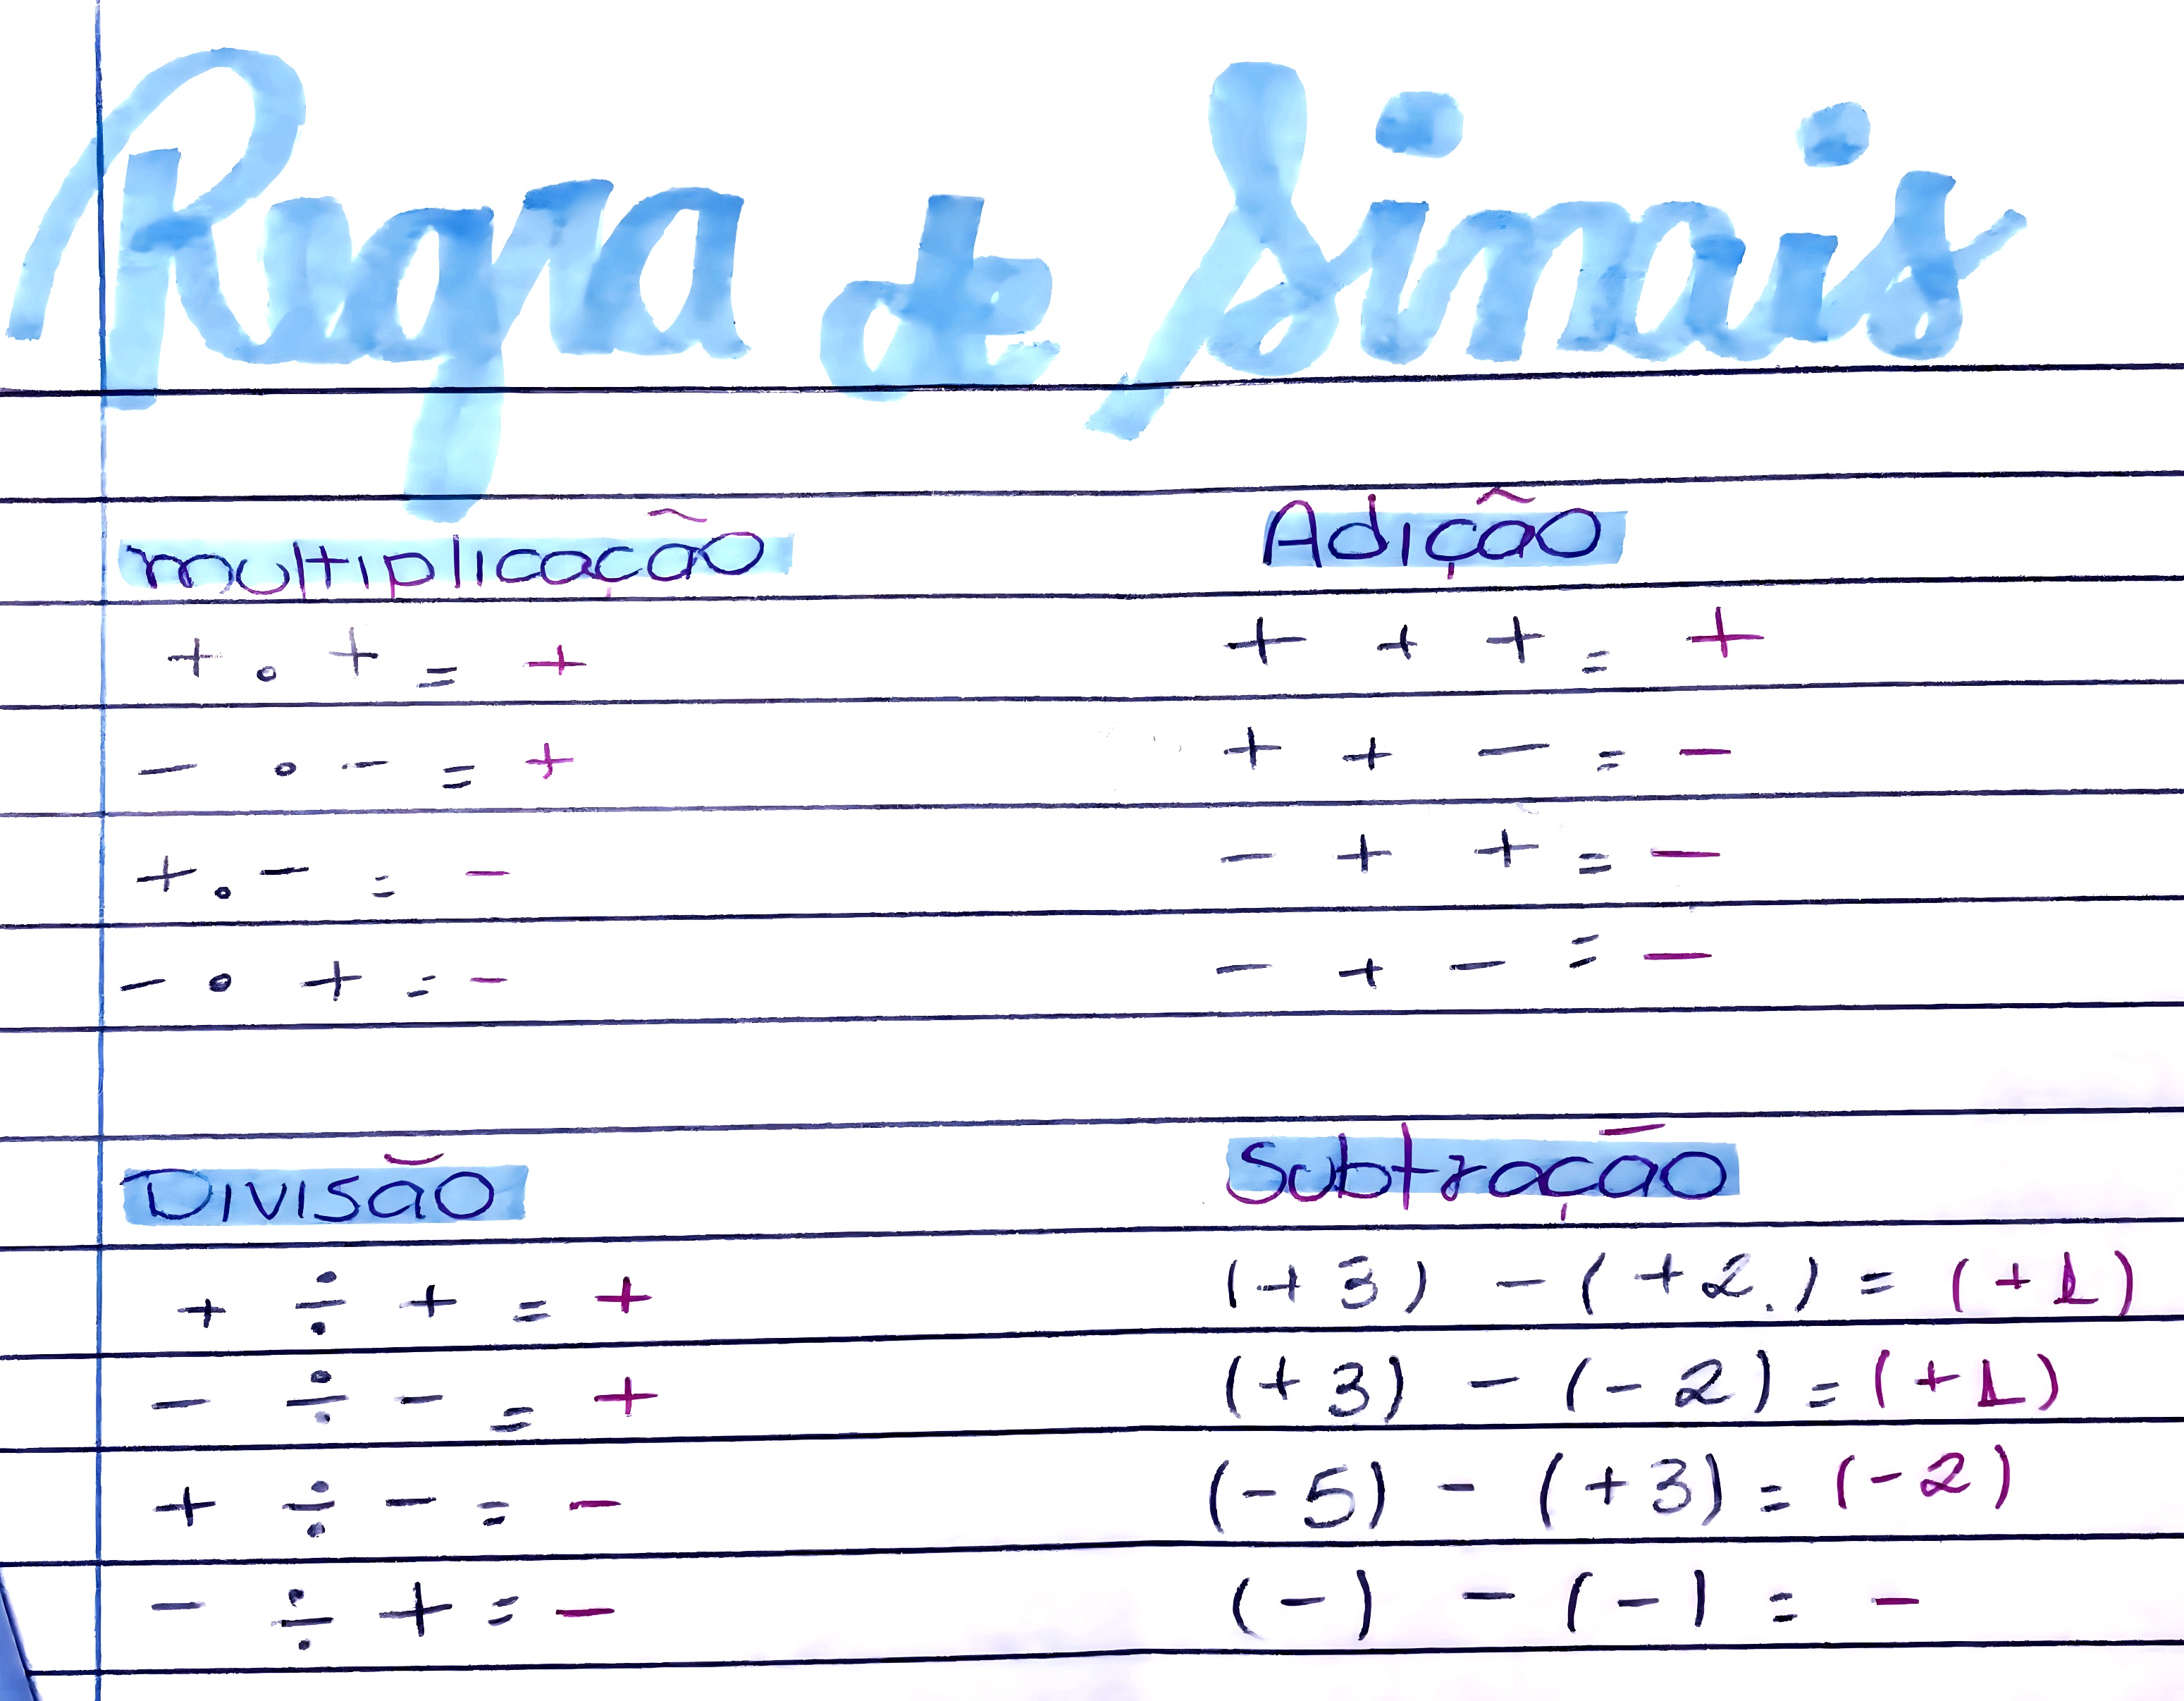 Regra de Sinais
multiplicação
+ . + = +
- . - = +
+ . - = -
- . + = -
Adição
+ + + = +
+ + - = -
- + + = -
- + - = -
Divisão
+ ÷ + = +
- ÷ - = +
+ ÷ - = -
- ÷ + = -
Subtração
(+3) - (+2.) = (+1)
(+3) - (-2) = (+1)
(-5) - (+3) = (-2)
(-) - (-) = -